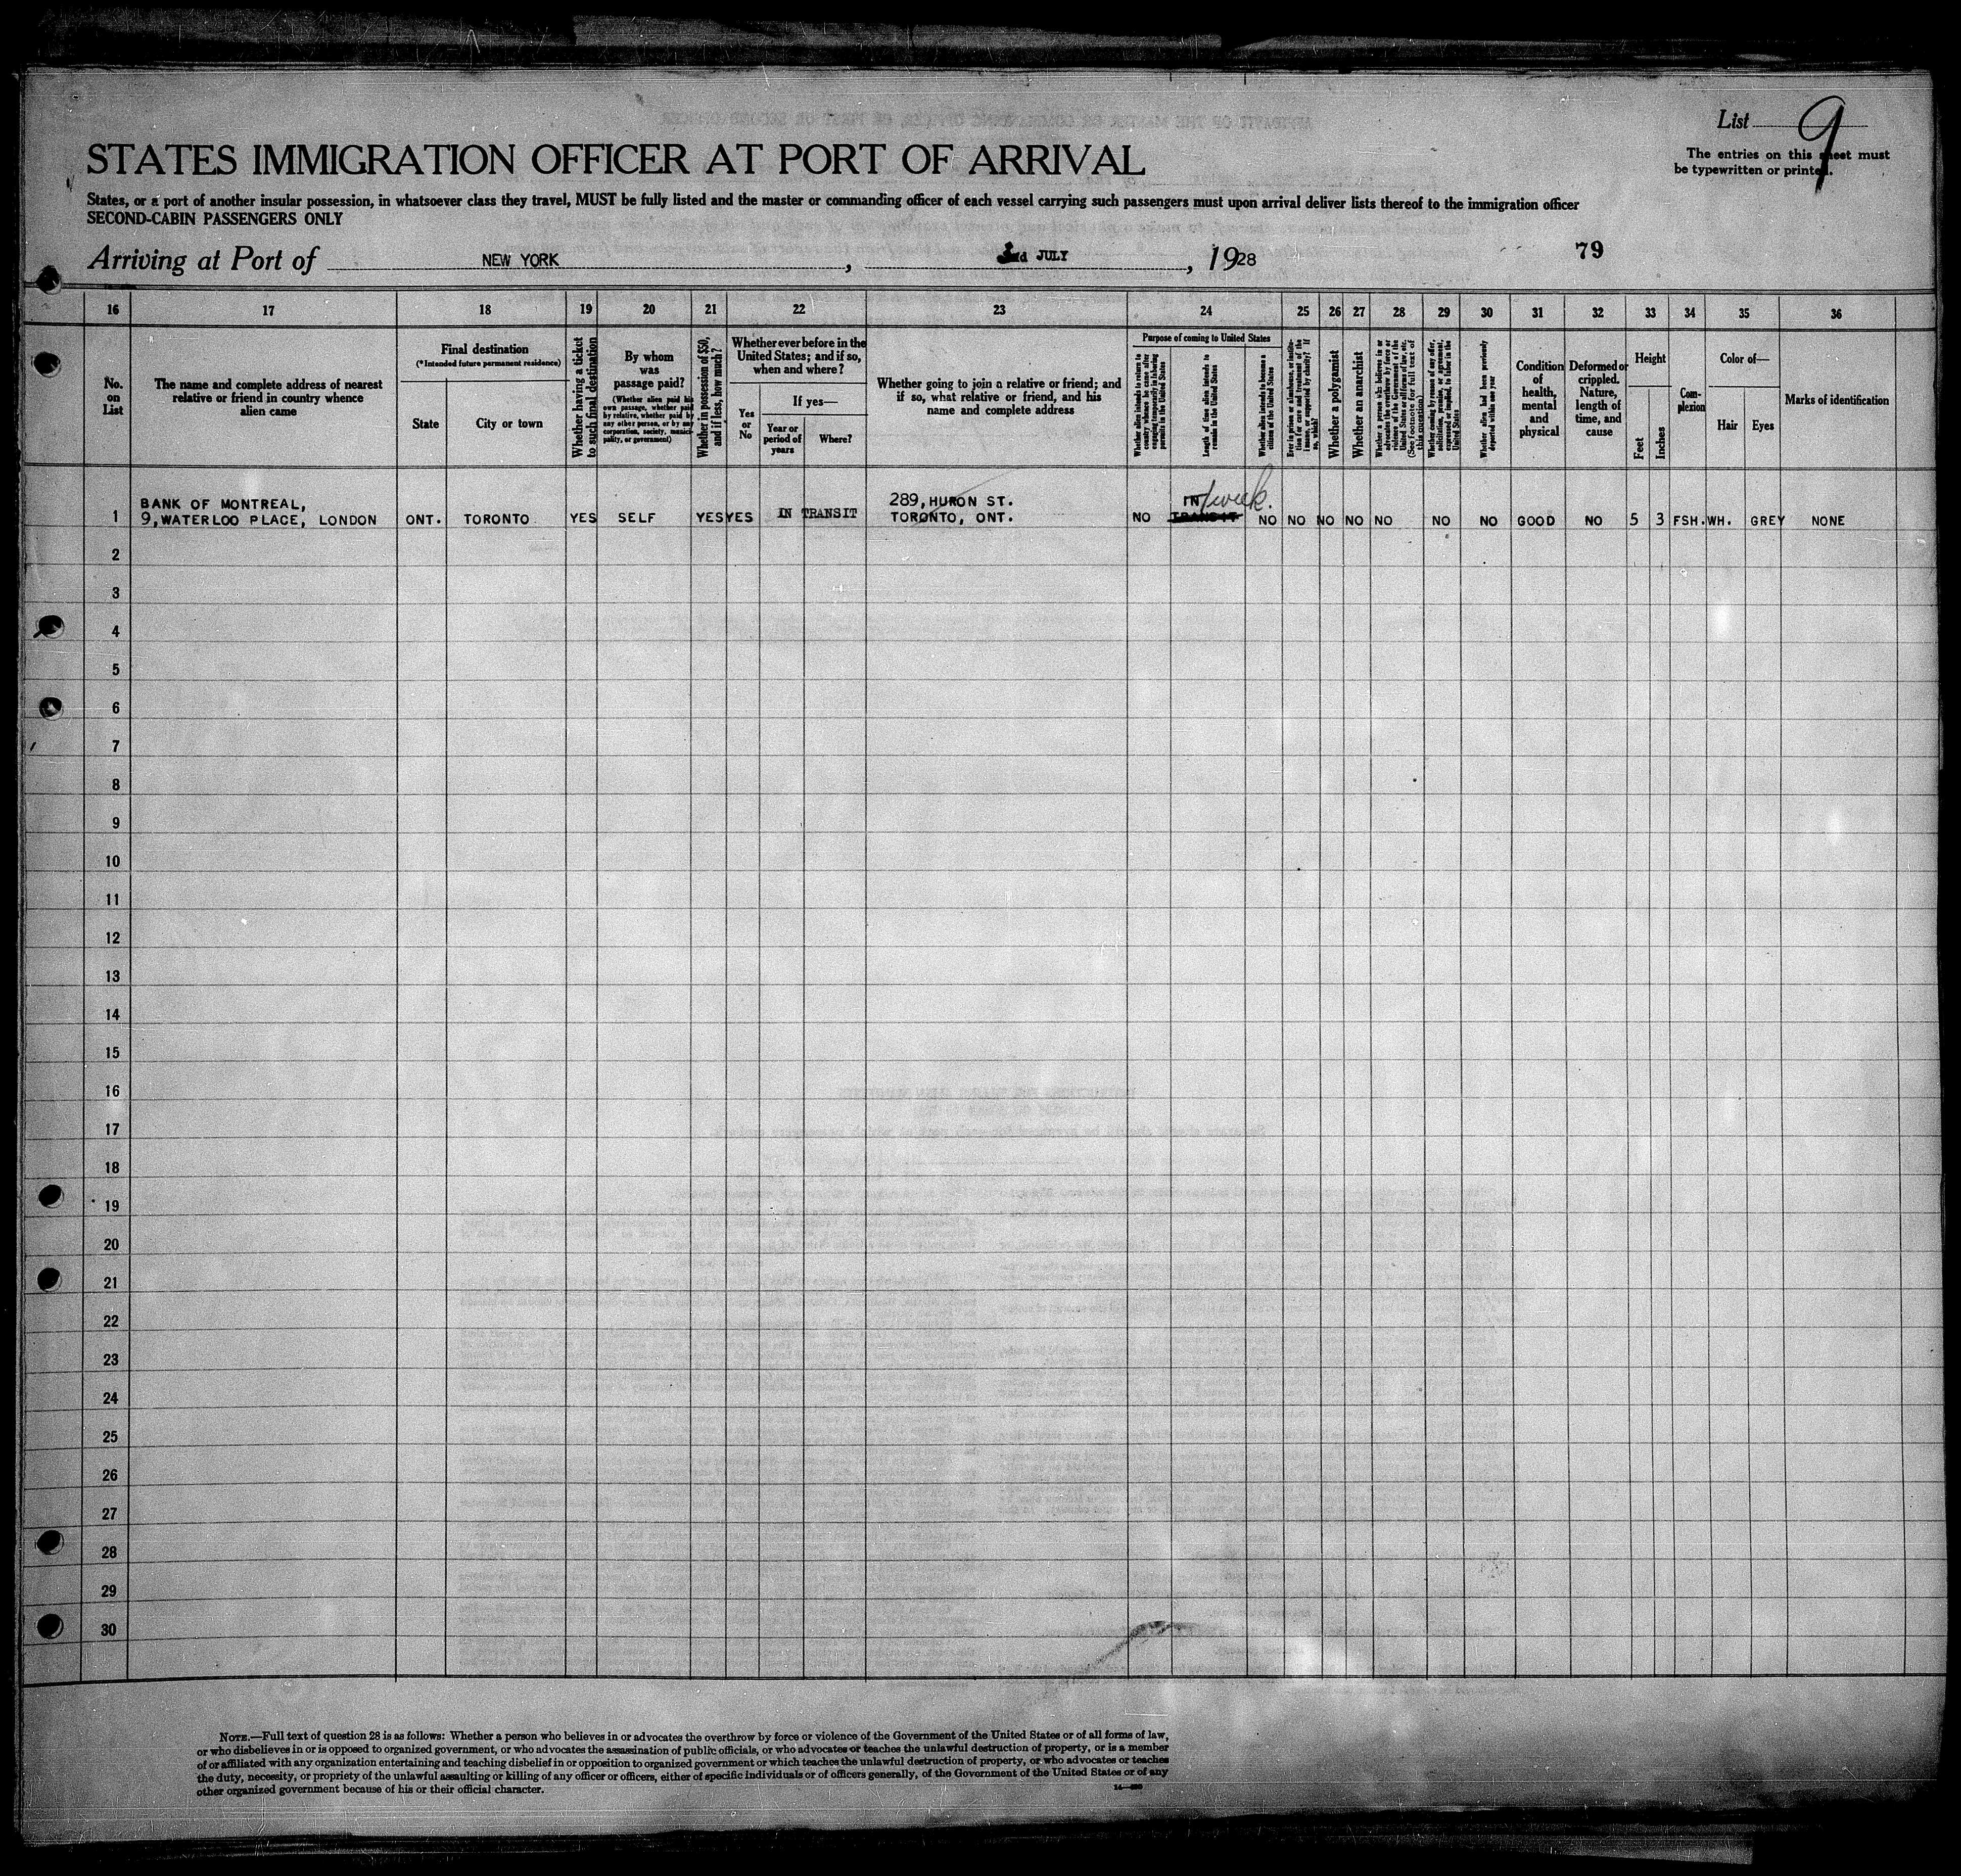 List 9
The entries on this sheet must
be typewritten or printed.
STATES IMMIGRATION OFFICER AT PORT OF ARRIVAL
States, or a port of another insular possession, in whatsoever class they travel, MUST be fully listed and the master or commanding officer of each vessel carrying such passengers must upon arrival deliver lists thereof to the immigration officer
SECOND-CABIN PASSENGERS ONLY
Arriving at Port of NEW YORK, JULY, 1928
79
16 17 18 19 20 21 22 23 24 25 26 27 28 29 30 31 32 33 34 35 36
No.
on
List
The name and complete address of nearest
relative or friend in country whence
alien came
Final destination
(*Intended future permanent residence)
State
City or town
Whether having a ticket
to such final destination
By whom
was
passage paid?
(Whether alien paid his
own passage, whether paid
by relative, whether paid by
any other person, or by any
corporation, society, munici-
pality, or government)
Whether in possession of $50,
and if less, how much?
Whether ever before in the
United States; and if so,
when and where?
Yes
or
No
If yes—
Year or
period of
years
Where?
Whether going to join a relative or friend; and
if so, what relative or friend, and his
name and complete address
Purpose of coming to United States
Whether alien intends to return to
country whence he came after
engaging temporarily in laboring
pursuits in the United States
Length of time alien intends to
remain in the United States
Whether alien intends to become a
citizen of the United States
Ever in prison or almshouse, or institu-
tion for care and treatment of the
insane, or supported by charity? If
so, which?
Whether a polygamist
Whether an anarchist
Whether a person who believes in or
advocates the overthrow by force or
violence of the Government of the
United States or all forms of law, etc.
(See footnote for full text of
this question)
Whether coming by reason of any offer,
solicitation, promise, or agreement,
expressed or implied, to labor in the
United States
Whether alien had been previously
deported within one year
Condition
of
health,
mental
and
physical
Deformed or
crippled.
Nature,
length of
time, and
cause
Height
Feet
Inches
Com-
plexion
Color of—
Hair
Eyes
Marks of identification
1 BANK OF MONTREAL,
9, WATERLOO PLACE, LONDON
ONT. TORONTO YES SELF YES YES IN TRANSIT
289, HURON ST.
TORONTO, ONT.
NO
IN
TRANSIT
1 week.
NO NO NO NO NO NO NO GOOD NO 5 3 FSH. WH. GREY NONE
2
3
4
5
6
7
8
9
10
11
12
13
14
15
16
17
18
19
20
21
22
23
24
25
26
27
28
29
30
NOTE.—Full text of question 28 is as follows: Whether a person who believes in or advocates the overthrow by force or violence of the Government of the United States or of all forms of law,
or who disbelieves in or is opposed to organized government, or who advocates the assassination of public officials, or who advocates or teaches the unlawful destruction of property, or is a member
of or affiliated with any organization entertaining and teaching disbelief in or opposition to organized government or which teaches the unlawful destruction of property, or who advocates or teaches
the duty, necessity, or propriety of the unlawful assaulting or killing of any officer or officers, either of specific individuals or of officers generally, of the Government of the United States or of any
other organized government because of his or their official character.